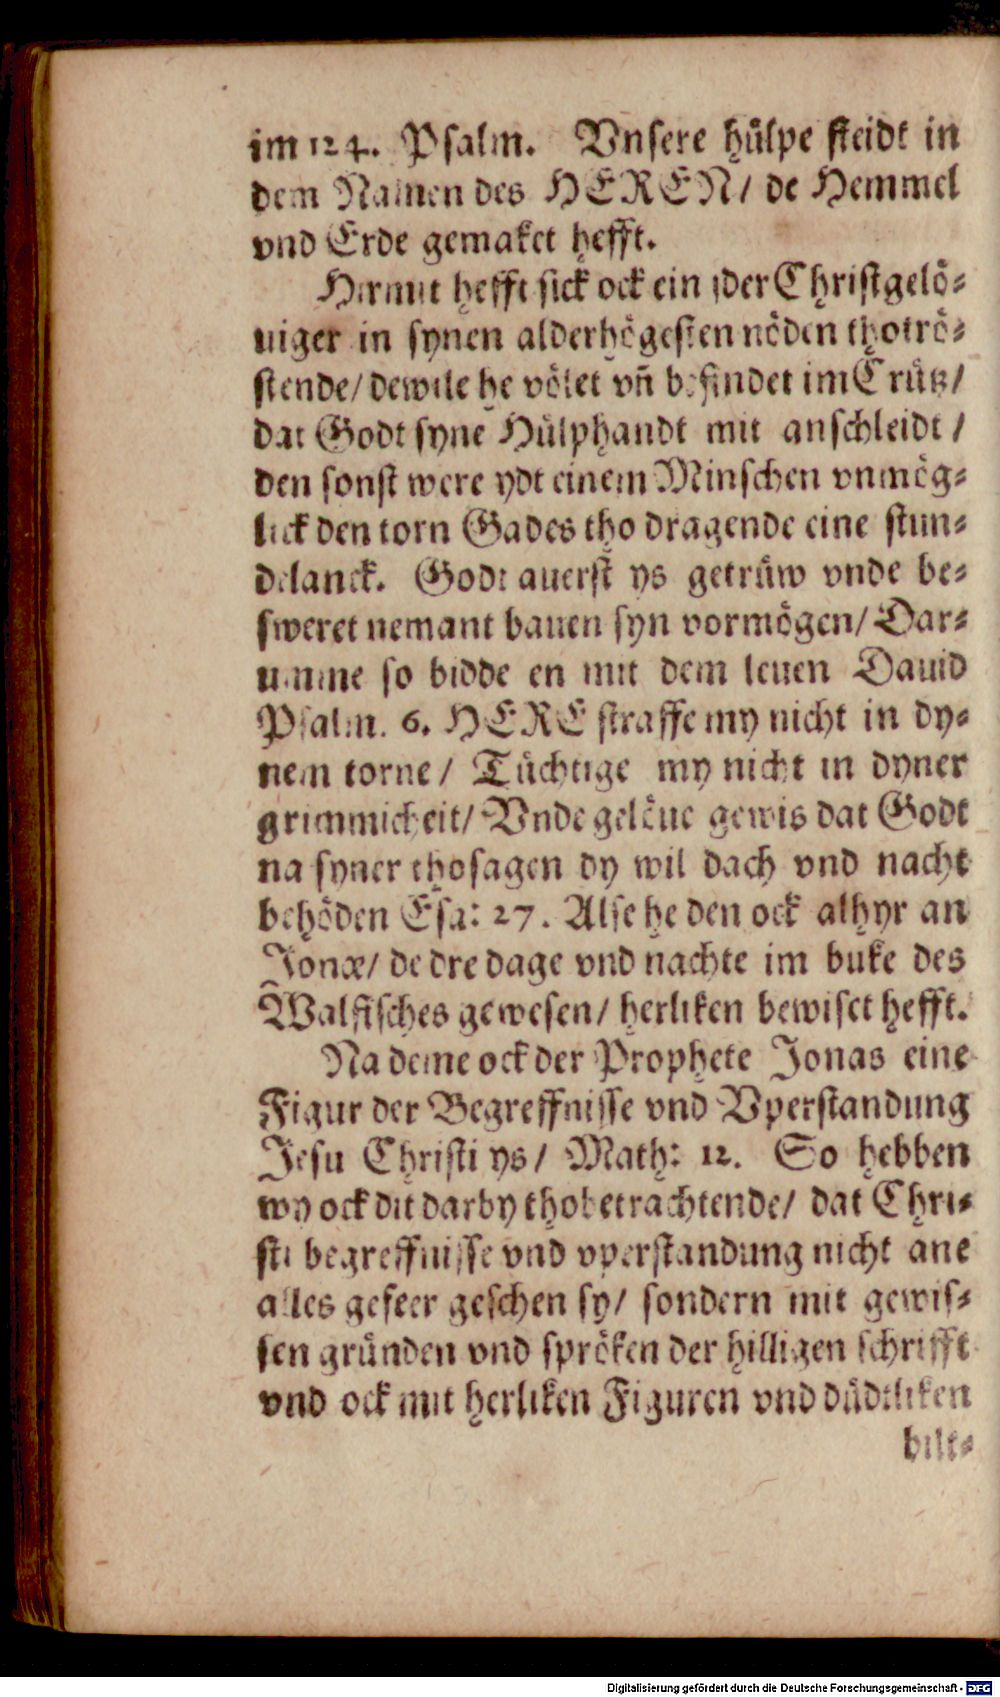 im 124. Psalm. Vnsere hülpe steidt in
dem Namen des HEREN/ de Hemmel
vnd Erde gemaket hefft.
Hirmit hefft sick ock ein jder Christgelö-
uiger in synen alderhögesten nöden thotrö-
stende/ dewile he völet vñ befindet im Crütz/
dat Godt syne Hülphandt mit anschleidt /
den sonst were ydt einem Minschen vnmög-
lick den torn Gades tho dragende eine stun-
delanck. Godt auerst ys getrüw vnde be-
sweret nemant bauen syn vormögen/ Dar-
umme so bidde en mit dem leuen Dauid
Psalm. 6. HERE straffe my nicht in dy-
nem torne / Tüchtige my nicht in dyner
grimmicheit/ Vnde gelöue gewis dat Godt
na syner thosagen dy wil dach vnd nacht
behöden Esa: 27. Alse he den ock alhyr an
Jonæ/ de dre dage vnd nachte im buke des
Walfisches gewesen/ herliken bewiset hefft.
Na deme ock der Prophete Jonas eine
Figur der Begreffnisse vnd Vperstandung
Jesu Christi ys / Math: 12. So hebben
wy ock dit darby thobetrachtende/ dat Chri-
sti begreffnisse vnd vperstandung nicht ane
alles gefeer geschen sy/ sondern mit gewis-
sen gründen vnd spröken der hilligen schrifft
vnd ock mit herliken Figuren vnd düdtliken
bilt-
Digitalisierung gefördert durch die Deutsche Forschungsgemeinschaft - DFG